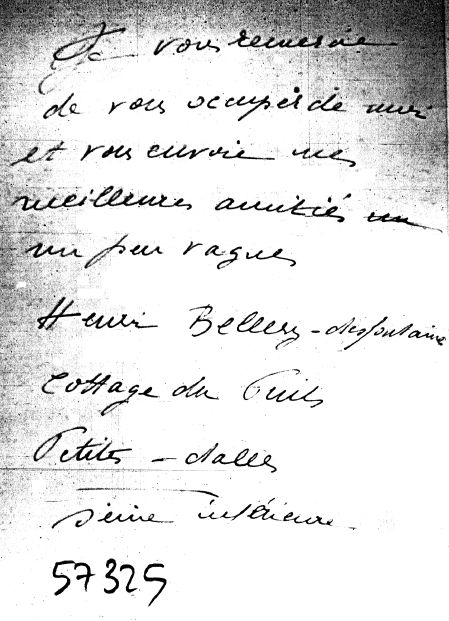 Je vous remercie
de vous occuper de moi
et vous envoie mes
meilleures amitiés un
un peu vagues
Henri Bellery-desfontaines
Cottage du Puits
Petites-dalles
Seine inférieure
57325